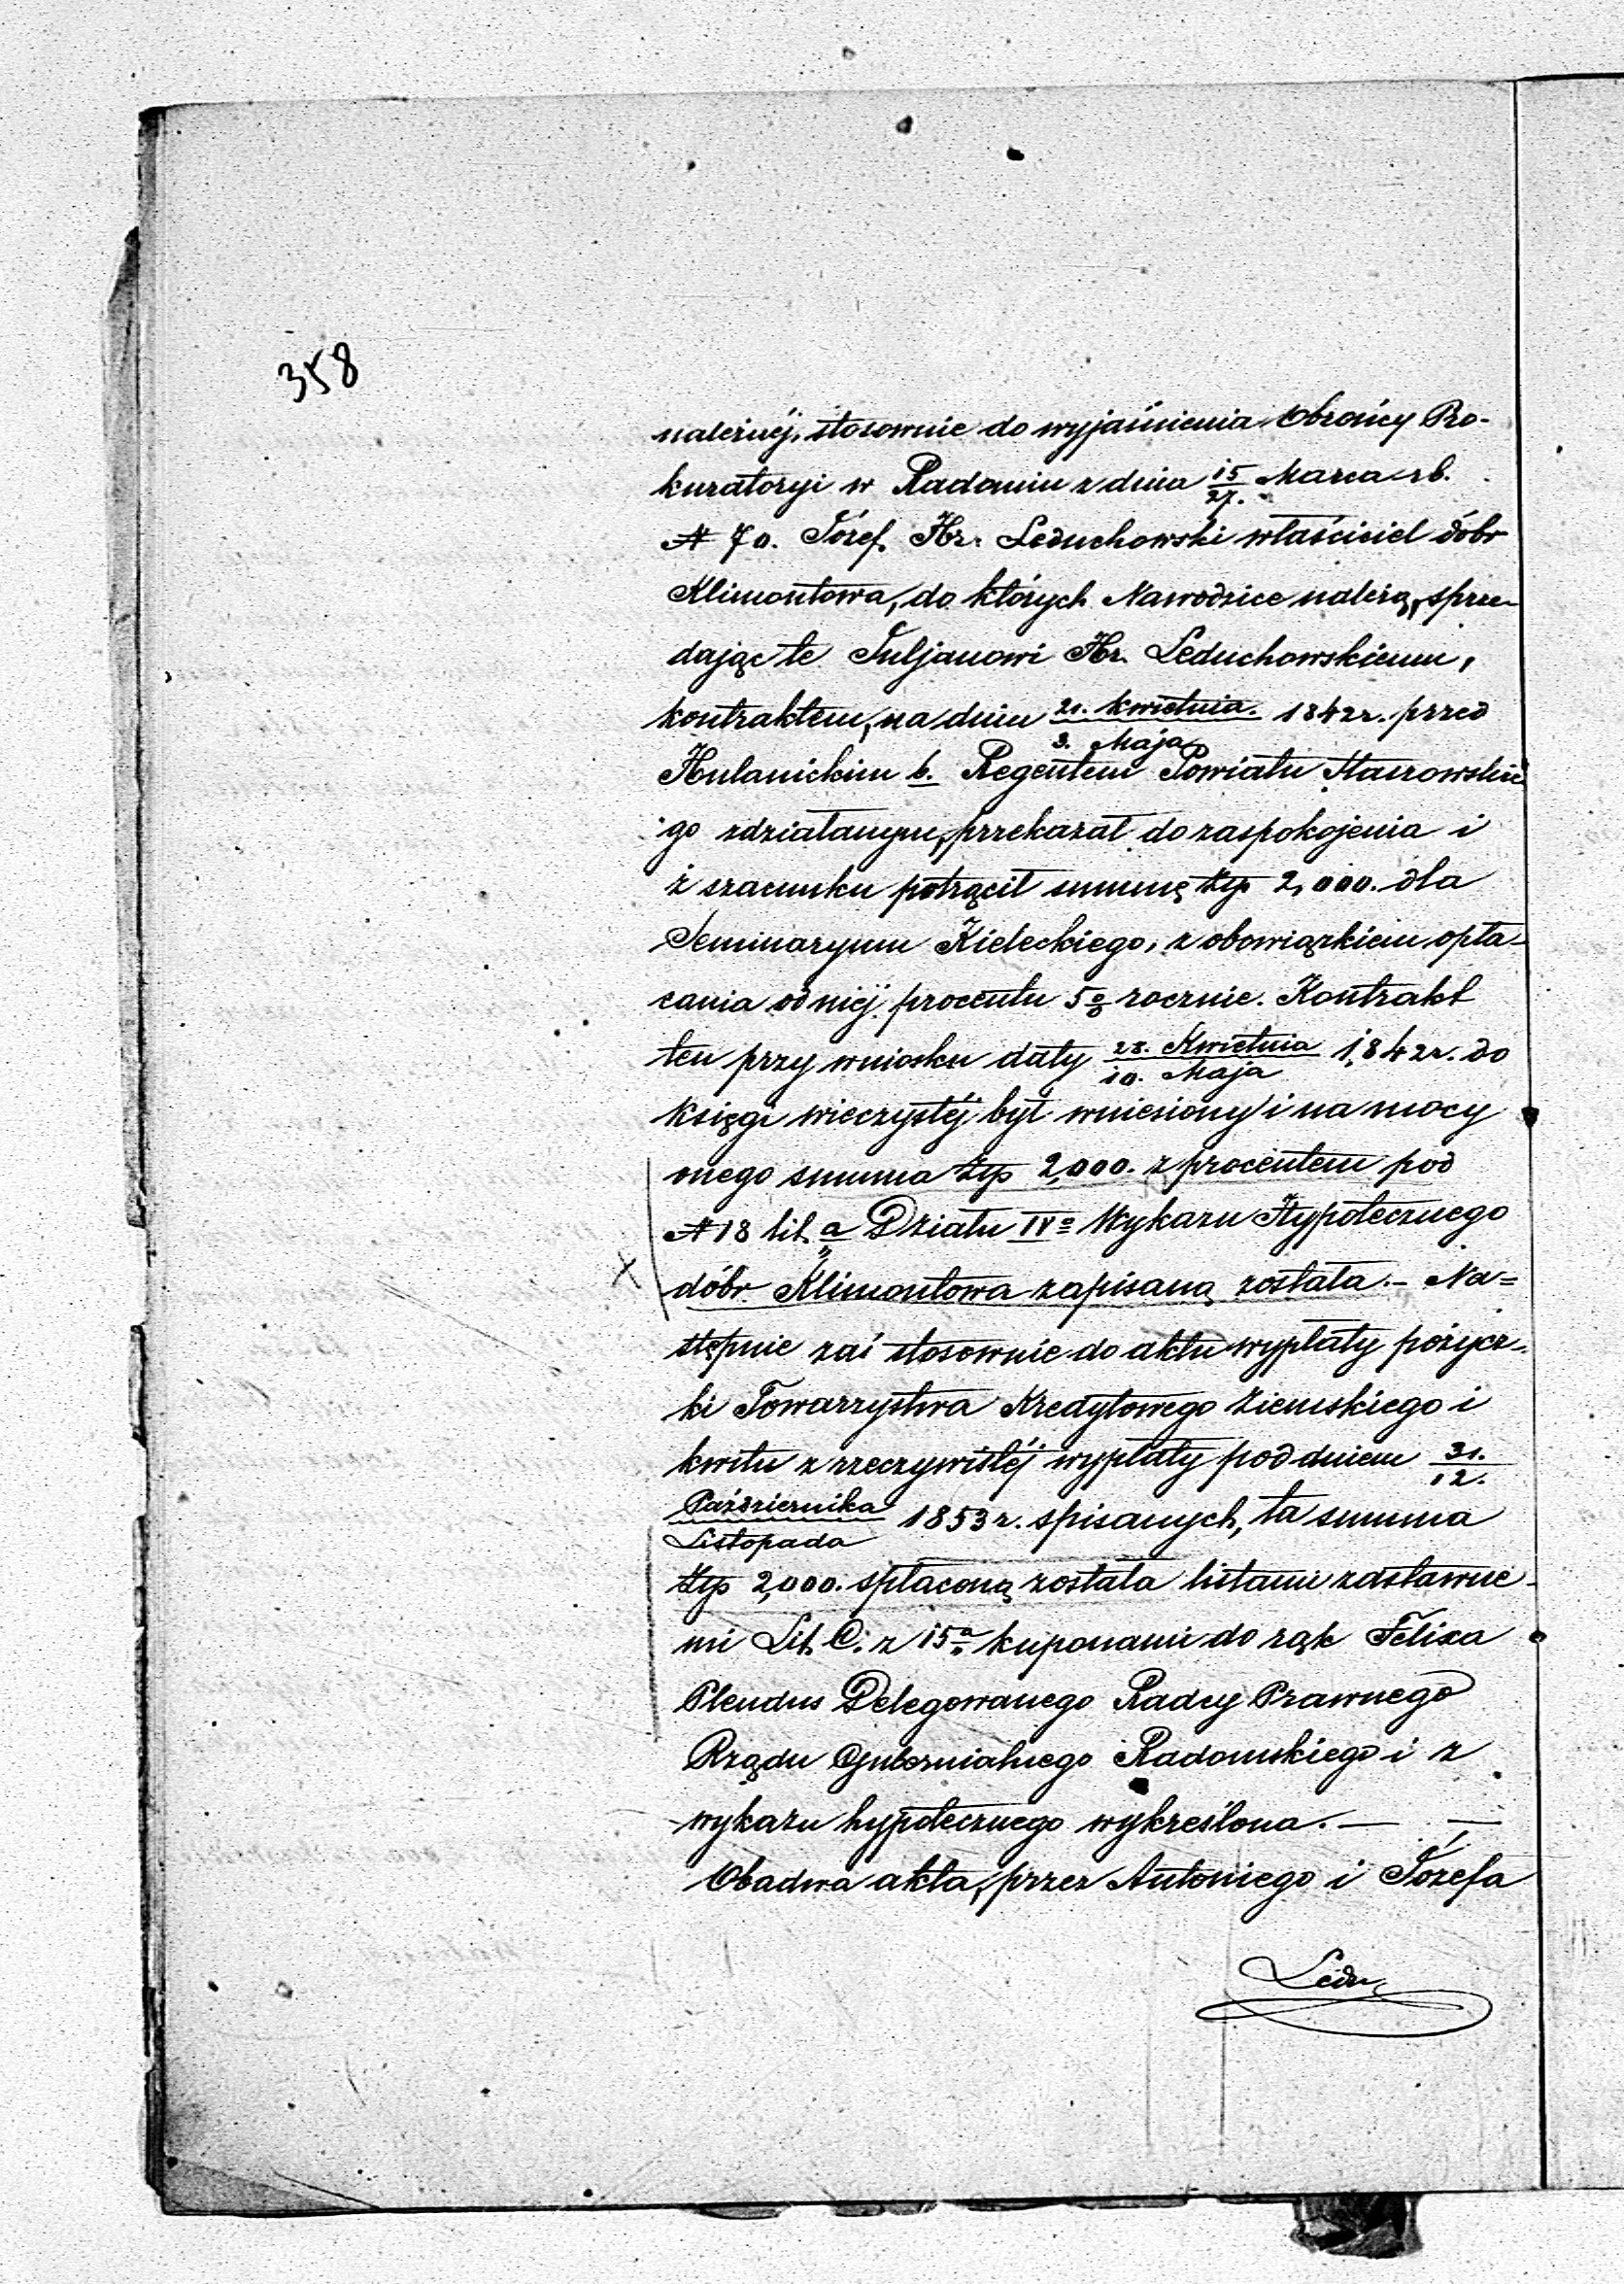 358
należnéj, stosownie do wyjaśnienia Obrońcy Pro-
kuratoryi w Radomiu z dnia 15/27. Marca rb.
№ 70. Józef Hr. Leduchowski właściciel dóbr
Klimontowa, do których Nawodzice należą, sprze-
dając te Juljanowi Hr. Leduchowskiemu,
kontraktem, na dniu 21. Kwietnia / 3. Maja 1842 r. przed
Hulanickim b. Regentem Powiatu Staszowskie
go zdziałanym, przekazał do zaspokojenia i
z szacunku potrącił summę złp 2,000. dla
Seminaryum Kieleckiego, z obowiązkiem opła-
cania od niéj procentu 5% rocznie. Kontrakt
ten przy wniosku daty 28. Kwietnia / 10. Maja 1842 r. do
księgi wieczystéj był wniesiony i na mocy
onego summa złp 2,000. z procentem pod
№ 18 lit. a Działu IVo Wykazu Hypotecznego
dóbr Klimontowa zapisaną została. – Na=
stępnie zaś stosownie do aktu wypłaty pożycz-
ki Towarzystwa Kredytowego Ziemskiego i
kwitu z rzeczywistéj wypłaty pod dniem 31. / 12.
Października / Listopada 1853 r. spisanych, ta summa
złp 2,000. spłaconą została listami zastawne-
mi Lit. C. z 15a kuponami do rąk Felixa
Plendus Delegowanego Radcy Prawnego
Rządu Gubernialnego Radomskiego i z
wykazu hypotecznego wykreślona. — —
Obadwa akta, przez Antoniego i Józefa
Ledu